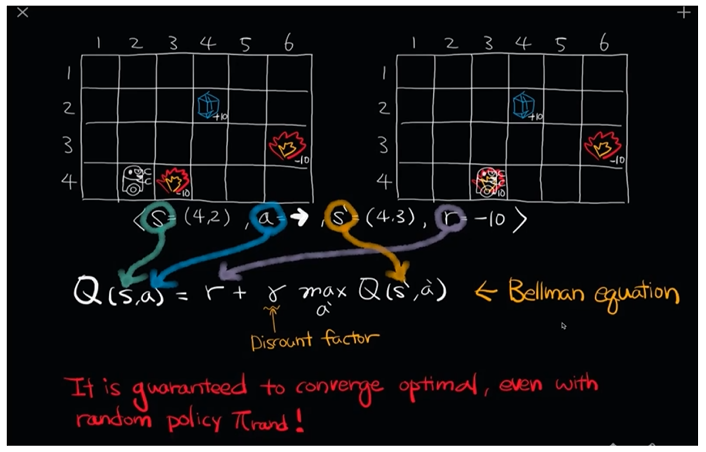 1 2 3 4 5 6
1
2 +10
3 -10
4 c c -10
1 2 3 4 5 6
1
2 +10
3 -10
4 c c -10
< S = (4,2) , a = → , s` = (4,3) , r = -10 >
Q(s,a) = r + γ max Q(s`,a`) ← Bellman equation
a`
Discount factor
It is guaranteed to converge optimal, even with
random policy πrand!